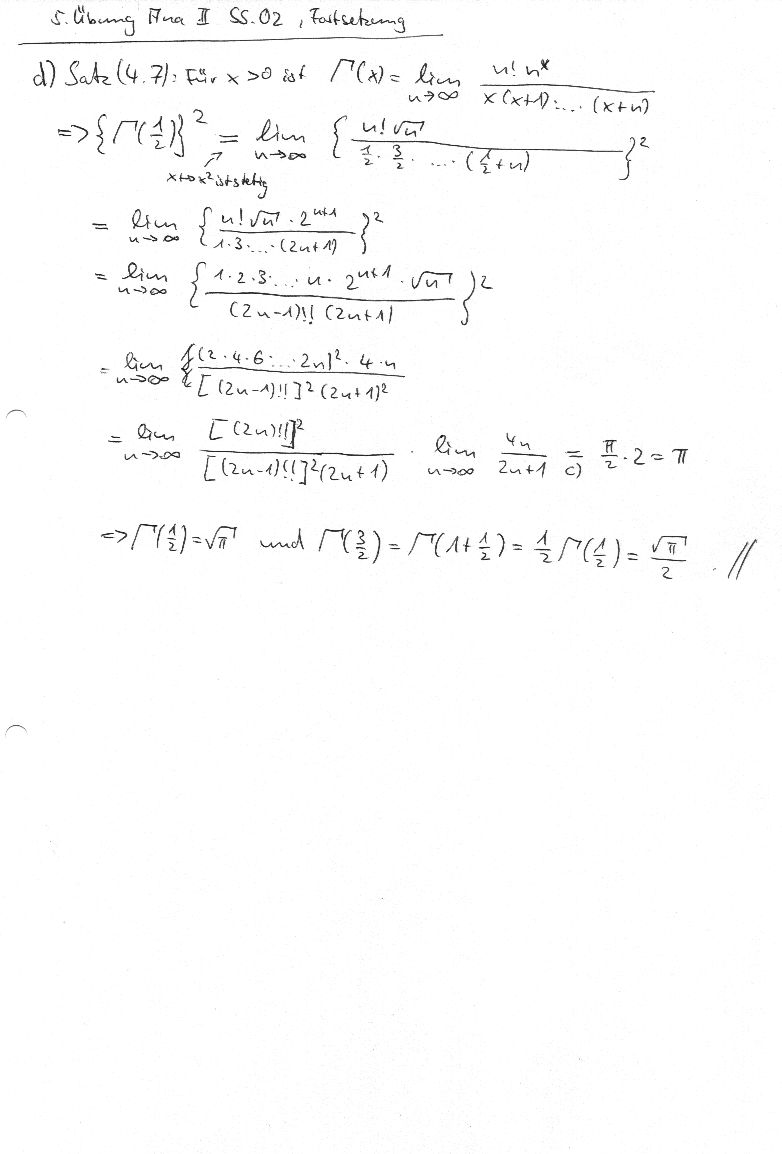 5. Übung Ana II SS.02, Fortsetzung
d) Satz (4.7): Für x > 0 ist Γ(x) = lim_{n→∞} n! n^x / x(x+1)·...·(x+n)
=> {Γ(1/2)}² = lim_{n→∞} { n! √n / 1/2 · 3/2 · .... (1/2+n) }²
x↦x² ist stetig
= lim_{n→∞} { n! √n · 2^{n+1} / 1·3·...·(2n+1) }²
= lim_{n→∞} { 1·2·3·...·n · 2^{n+1} · √n / (2n-1)!! (2n+1) }²
= lim_{n→∞} (2·4·6·...·2n)² · 4·n / [(2n-1)!!]² (2n+1)²
= lim_{n→∞} [(2n)!!]² / [(2n-1)!!]² (2n+1) · lim_{n→∞} 4n / 2n+1 =_{c)} π/2 · 2 = π
=> Γ(1/2) = √π und Γ(3/2) = Γ(1+1/2) = 1/2 Γ(1/2) = √π / 2 . //